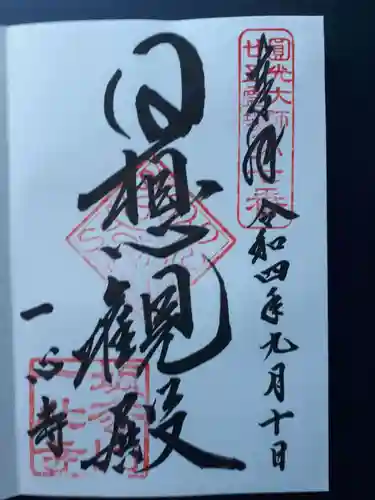 奉拝 令和四年九月十日
日想観殿
一心寺
圓光大師